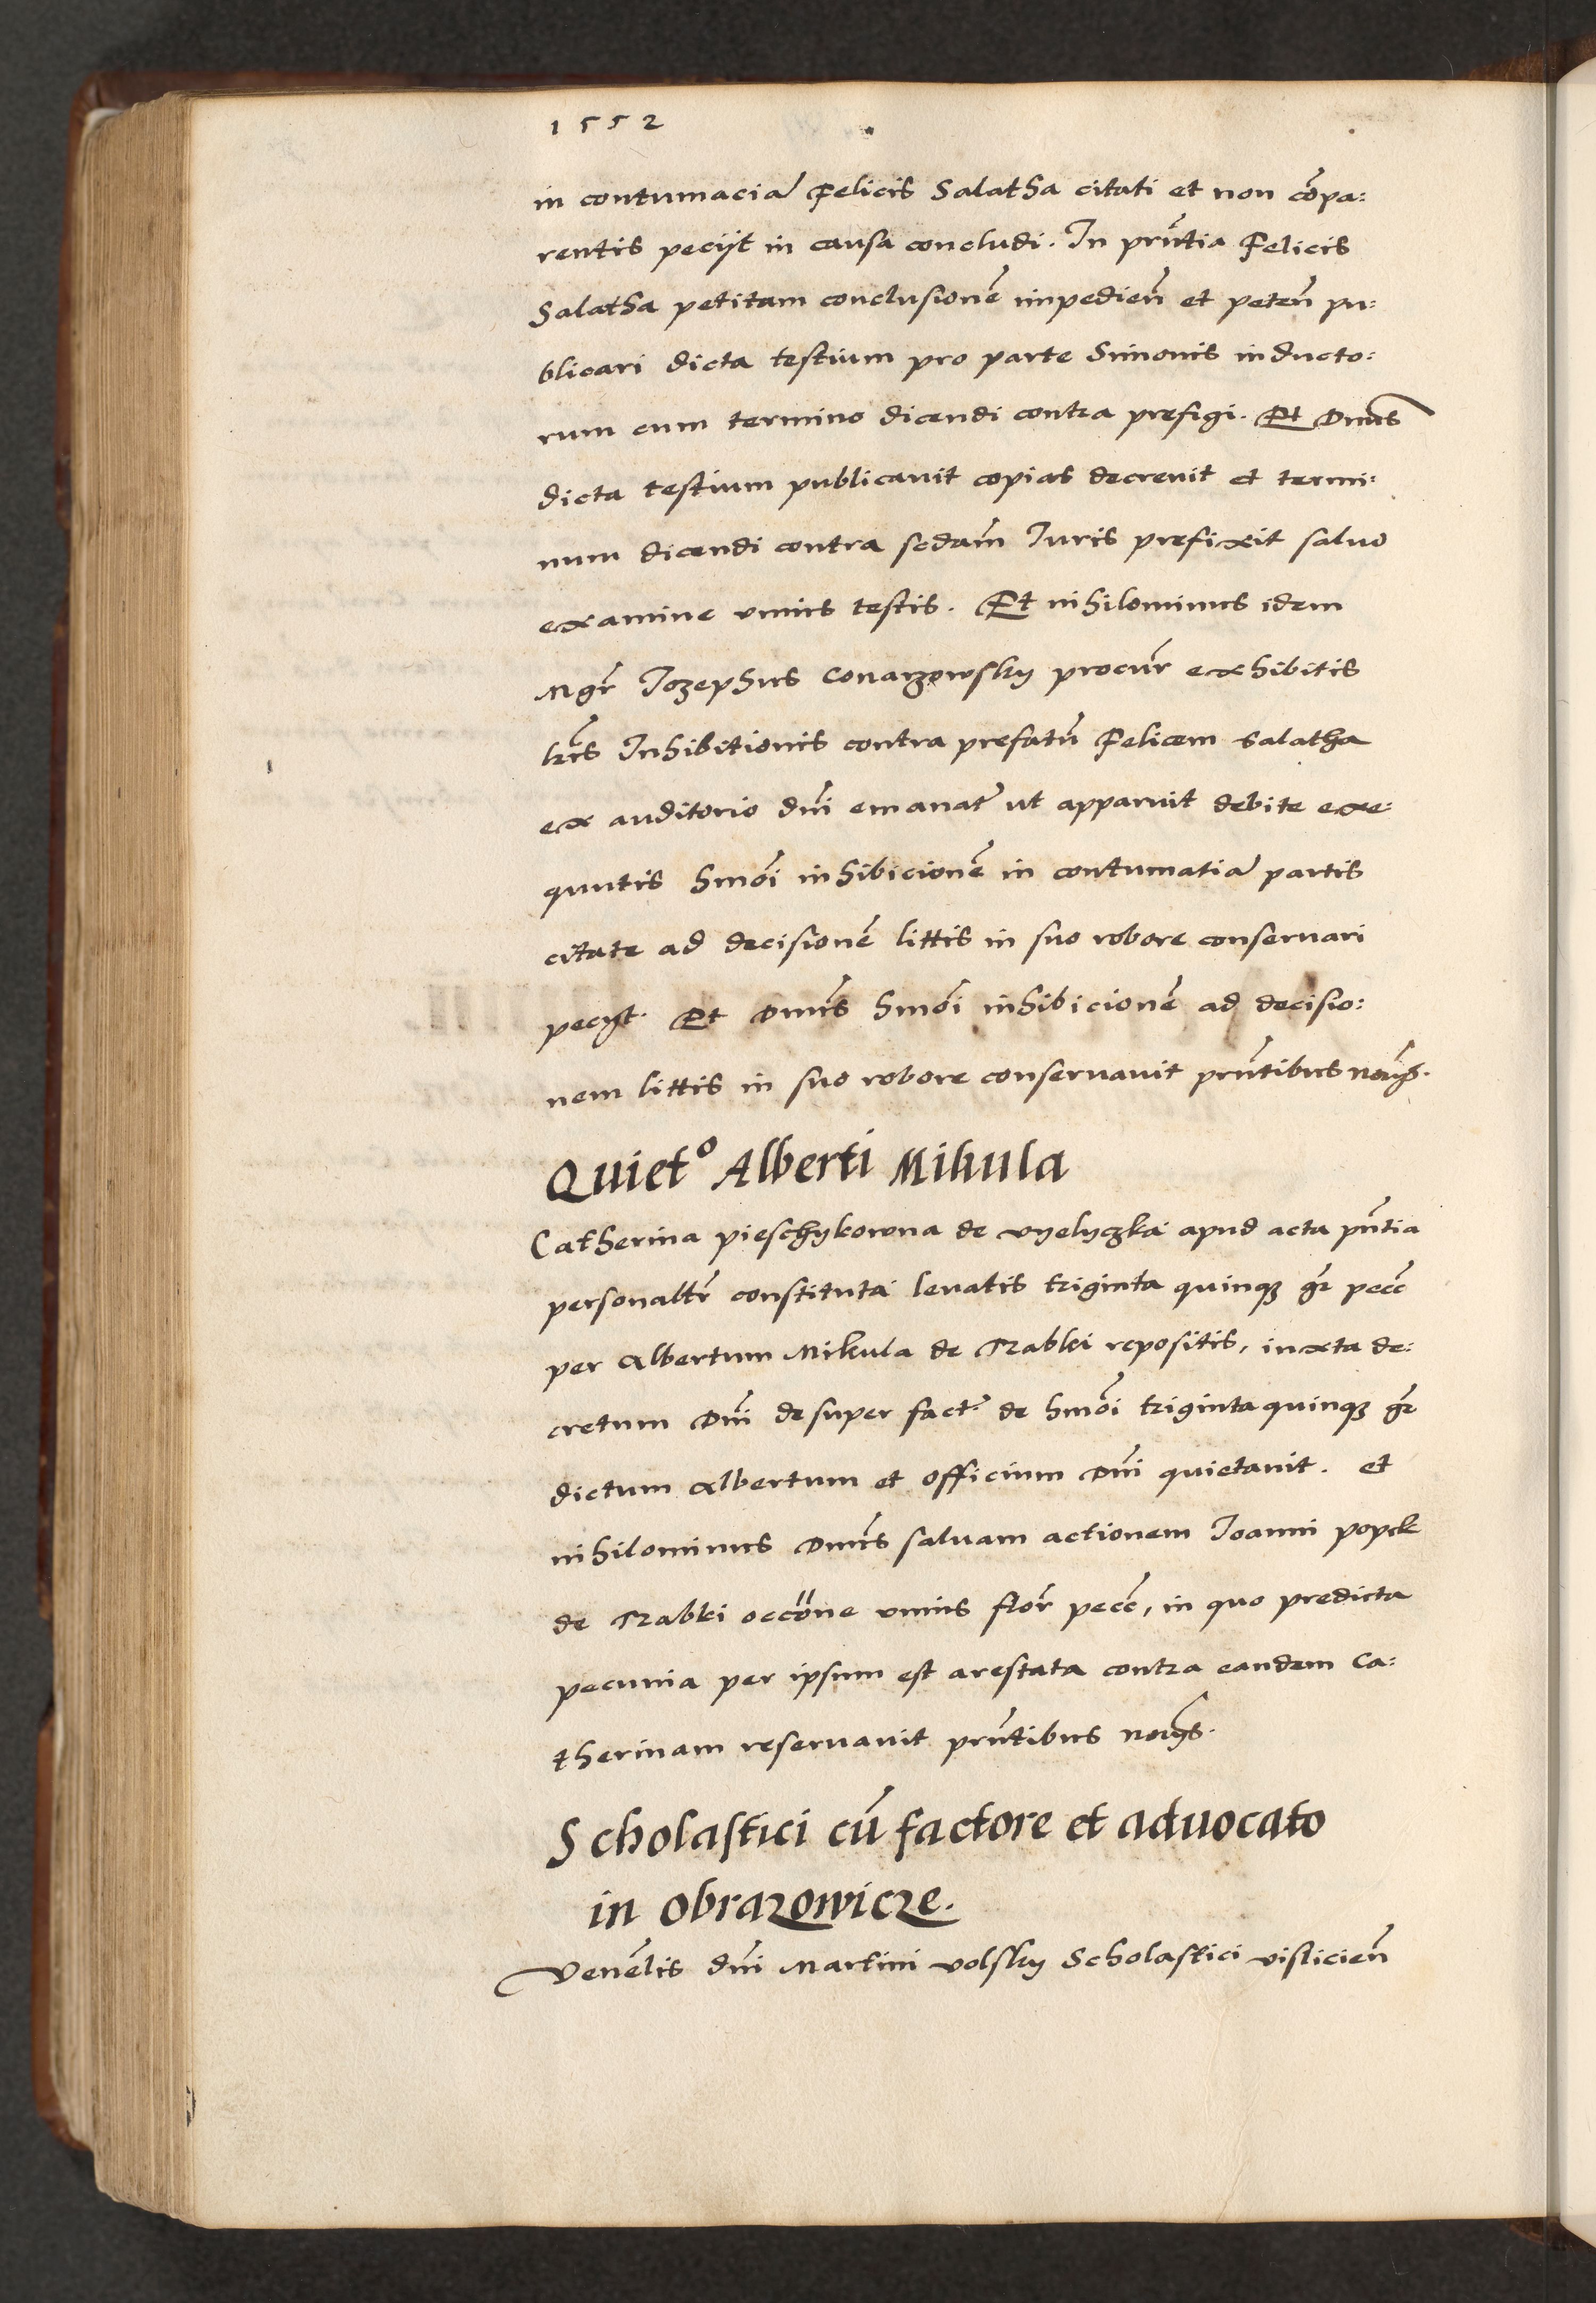 1552
in contumaciã Felicis Salatha citati et non cõpa:
rentis pecijt in causa concludi. In prñtia Felicis
Salatha petitam conclusionẽ impedieñ et peteñ pu:
blicari dicta testium pro parte Simonis inducto:
rum cum termino dicendi contra prefigi. Et Dnus
dicta testium publicauit copias decreuit et termi:
num dicendi contra scdam̃ Iuris prefixit saluo
examine vnius testis. Et nihilominus idem
Mgr̃ Iozephus Conarzowsky procur̃ exhibitis
lr̃is Inhibitionis contra prefatũ Felicem Salatha
ex auditorio dñi emanat̃ ut apparuit debite exe:
quutis hmõi inhibicionẽ in contumatiã partis
citate ad decisionẽ littis in suo robore conseruari
pecyt. Et Dnus hmõi inhibicionẽ ad decisio:
nem littis in suo robore conseruauit prñtibus
Quietº Alberti Mikula
Catherina pieschykowna de vyelyczka apud acta pñtia
personalr̃ constituta leuatis triginta quinqȝ gr̃ pecc̃
per Albertum Mikula de Trabki repositis, iuxta de:
cretum Dñi desuper fact̃ de hmõi triginta quinqȝ gr̃
dictum Albertum et officium Dñi quietauit. et
nihilominus Dnus saluam actionem Ioanni popek
de Trabki occõne vnius flor̃ pecc̃, in quo predicta
pecunia per ipsum est arestata contra eandem Ca:
therinam reseruauit prñtibus
Scholastici cũ factore et aduocato
in obrazowicze.
Venẽlis dñi Martini volsky Scholastici vislicieñ